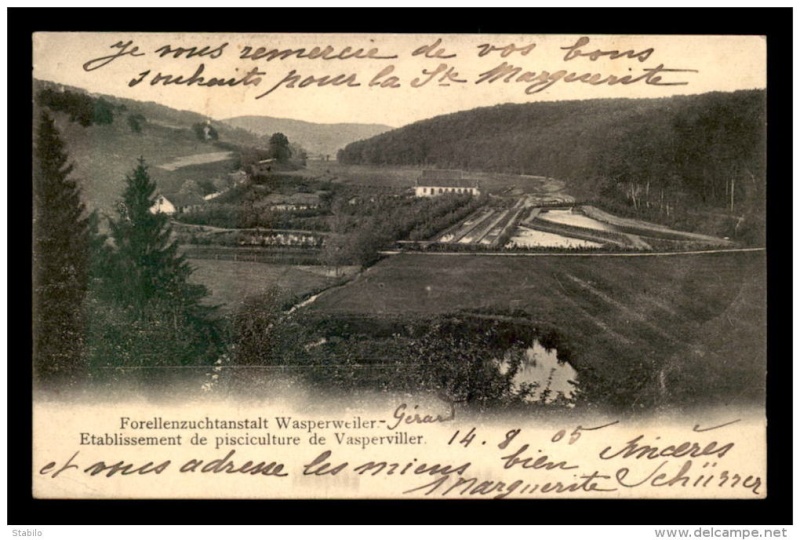 Je vous remercie de vos bons
souhaits pour la Ste Marguerite
Forellenzuchtanstalt Wasperweiler.-
Etablissement de pisciculture de Vasperviller.
14. 8. 05
et vous adresse les miens bien sincères
Marguerite Schürrer
Stabilo
www.delcampe.net